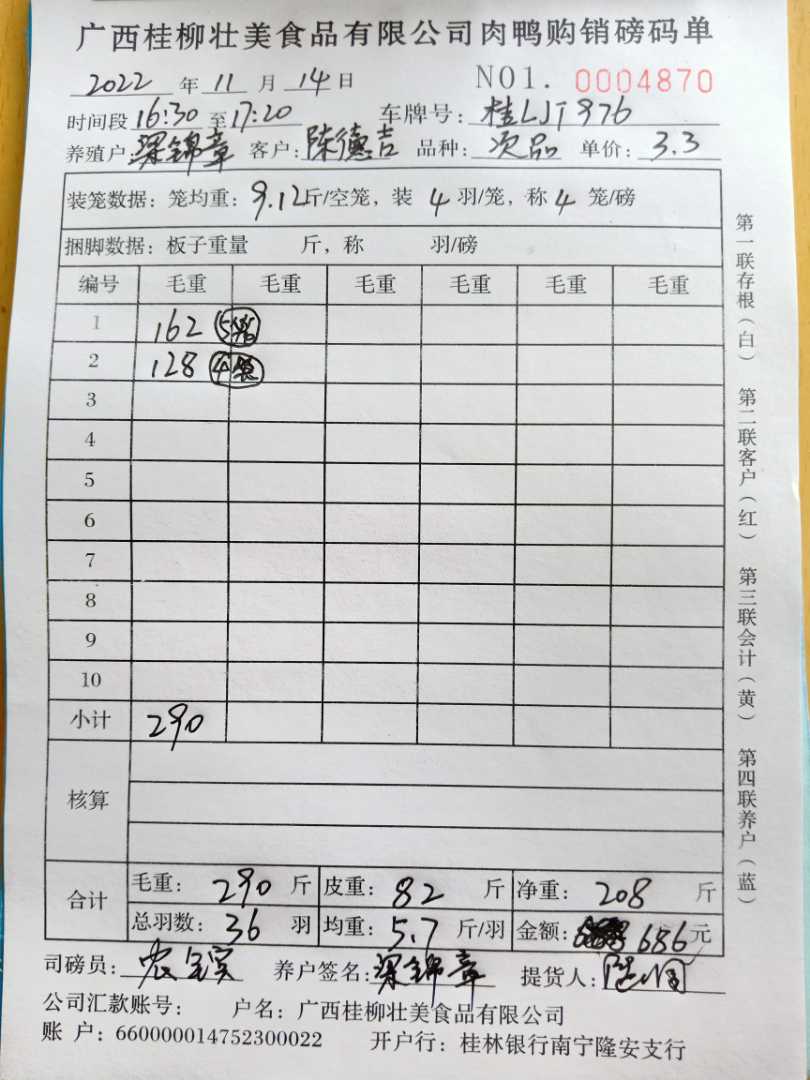 广西桂柳壮美食品有限公司肉鸭购销磅码单
2022 年 11 月 14 日 NO1. 0004870
时间段 16:30 至 17:20 车牌号: 桂LJT976
养殖户 梁锦章 客户: 陈德吉 品种: 次品 单价: 3.3
装笼数据: 笼均重: 9.12斤/空笼, 装 4 羽/笼, 称 4 笼/磅
捆脚数据: 板子重量 斤, 称 羽/磅
编号 毛重 毛重 毛重 毛重 毛重 毛重
1 162 5笼
2 128 4笼
3
4
5
6
7
8
9
10
小计 290
核算
合计 毛重: 290 斤 皮重: 82 斤 净重: 208 斤
总羽数: 36 羽 均重: 5.7 斤/羽 金额: 686元
司磅员: 养户签名: 梁锦章 提货人:
公司汇款账号: 户名: 广西桂柳壮美食品有限公司
账 户: 660000014752300022 开户行: 桂林银行南宁隆安支行
第一联存根(白) 第二联客户(红) 第三联会计(黄) 第四联养户(蓝)